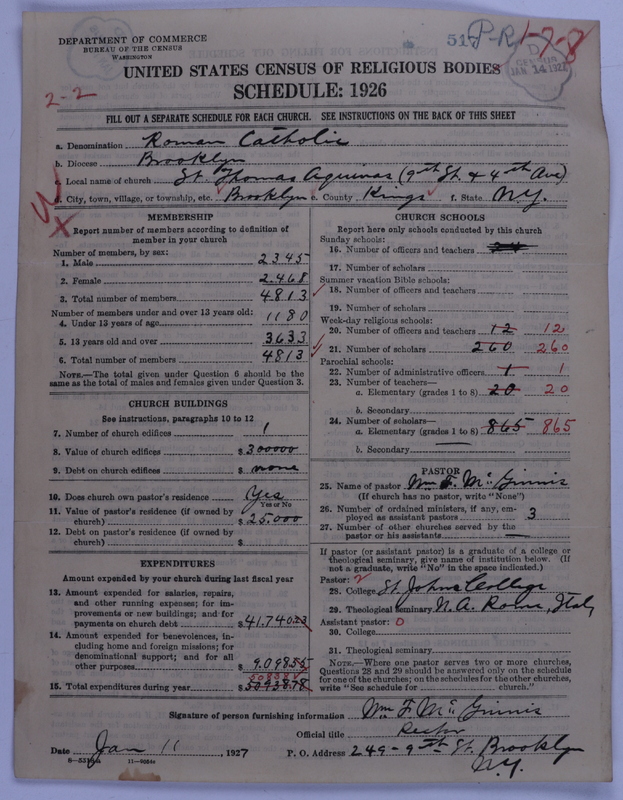 DEPARTMENT OF COMMERCE
BUREAU OF THE CENSUS
WASHINGTON
517 P-R 1-7-8
D
CENSUS
JAN 14 1927
UNITED STATES CENSUS OF RELIGIOUS BODIES
SCHEDULE: 1926
2-2
FILL OUT A SEPARATE SCHEDULE FOR EACH CHURCH. SEE INSTRUCTIONS ON THE BACK OF THIS SHEET
a. Denomination Roman Catholic
b. Diocese Brooklyn
c. Local name of church St. Thomas Aquinas (9th St. & 4th Ave)
d. City, town, village, or township, etc. Brooklyn e. County Kings f. State N.Y.
MEMBERSHIP
Report number of members according to definition of
member in your church
Number of members, by sex:
1. Male 2345
2. Female 2.468
3. Total number of members 4813
Number of members under and over 13 years old:
4. Under 13 years of age 1180
5. 13 years old and over 3633
6. Total number of members 4813
NOTE.—The total given under Question 6 should be the
same as the total of males and females given under Question 3.
CHURCH BUILDINGS
See instructions, paragraphs 10 to 12
7. Number of church edifices 1
8. Value of church edifices $300000
9. Debt on church edifices $none
10. Does church own pastor's residence Yes
Yes or No
11. Value of pastor's residence (if owned by
church) $25.000
12. Debt on pastor's residence (if owned by
church) $
EXPENDITURES
Amount expended by your church during last fiscal year
13. Amount expended for salaries, repairs,
and other running expenses; for im-
provements or new buildings; and for
payments on church debt $41.740.23
14. Amount expended for benevolences, in-
cluding home and foreign missions; for
denominational support; and for all
other purposes $9.098.55
15. Total expenditures during year $
CHURCH SCHOOLS
Report here only schools conducted by this church
Sunday schools:
16. Number of officers and teachers 24
17. Number of scholars
Summer vacation Bible schools:
18. Number of officers and teachers
19. Number of scholars
Week-day religious schools:
20. Number of officers and teachers 12 12
21. Number of scholars 260 260
Parochial schools:
22. Number of administrative officers 1 1
23. Number of teachers—
a. Elementary (grades 1 to 8) 20 20
b. Secondary
24. Number of scholars—
a. Elementary (grades 1 to 8) 865 865
b. Secondary
PASTOR
25. Name of pastor Wm F. McGinnis
(If church has no pastor, write "None")
26. Number of ordained ministers, if any, em-
ployed as assistant pastors 3
27. Number of other churches served by the
pastor or his assistants —
If pastor (or assistant pastor) is a graduate of a college or
theological seminary, give name of institution below. (If
not a graduate, write "No" in the space indicated.)
Pastor: 2
28. College St Johns College
29. Theological seminary N. A. Rome, Italy
Assistant pastor: 0
30. College
31. Theological seminary
NOTE.—Where one pastor serves two or more churches,
Questions 28 and 29 should be answered only on the schedule
for one of the churches; on the schedules for the other churches,
write "See schedule for church."
Signature of person furnishing information Wm F. McGinnis
Official title Rector
Date Jan 11 1927 P. O. Address 249-9th St. Brooklyn
N.Y.